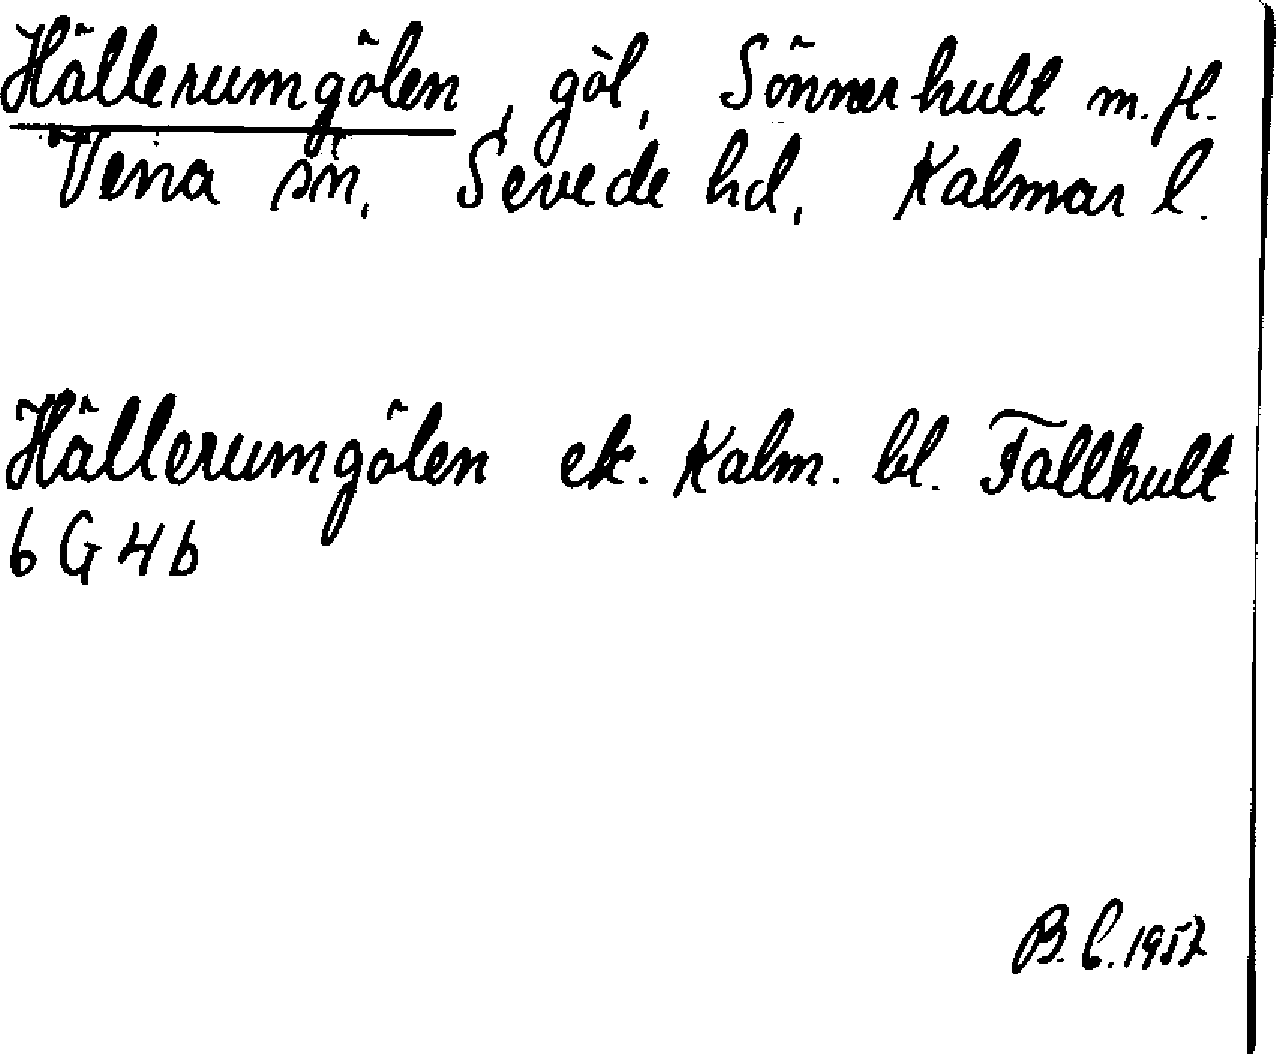 Hällerumgölen, göl, Sönnerhult m.fl.
Vena sn, Sevede hd, Kalmar l.
Hällerumgölen ek. Kalm. bl. Fallhult
6 G 4 b
B. C. 1957